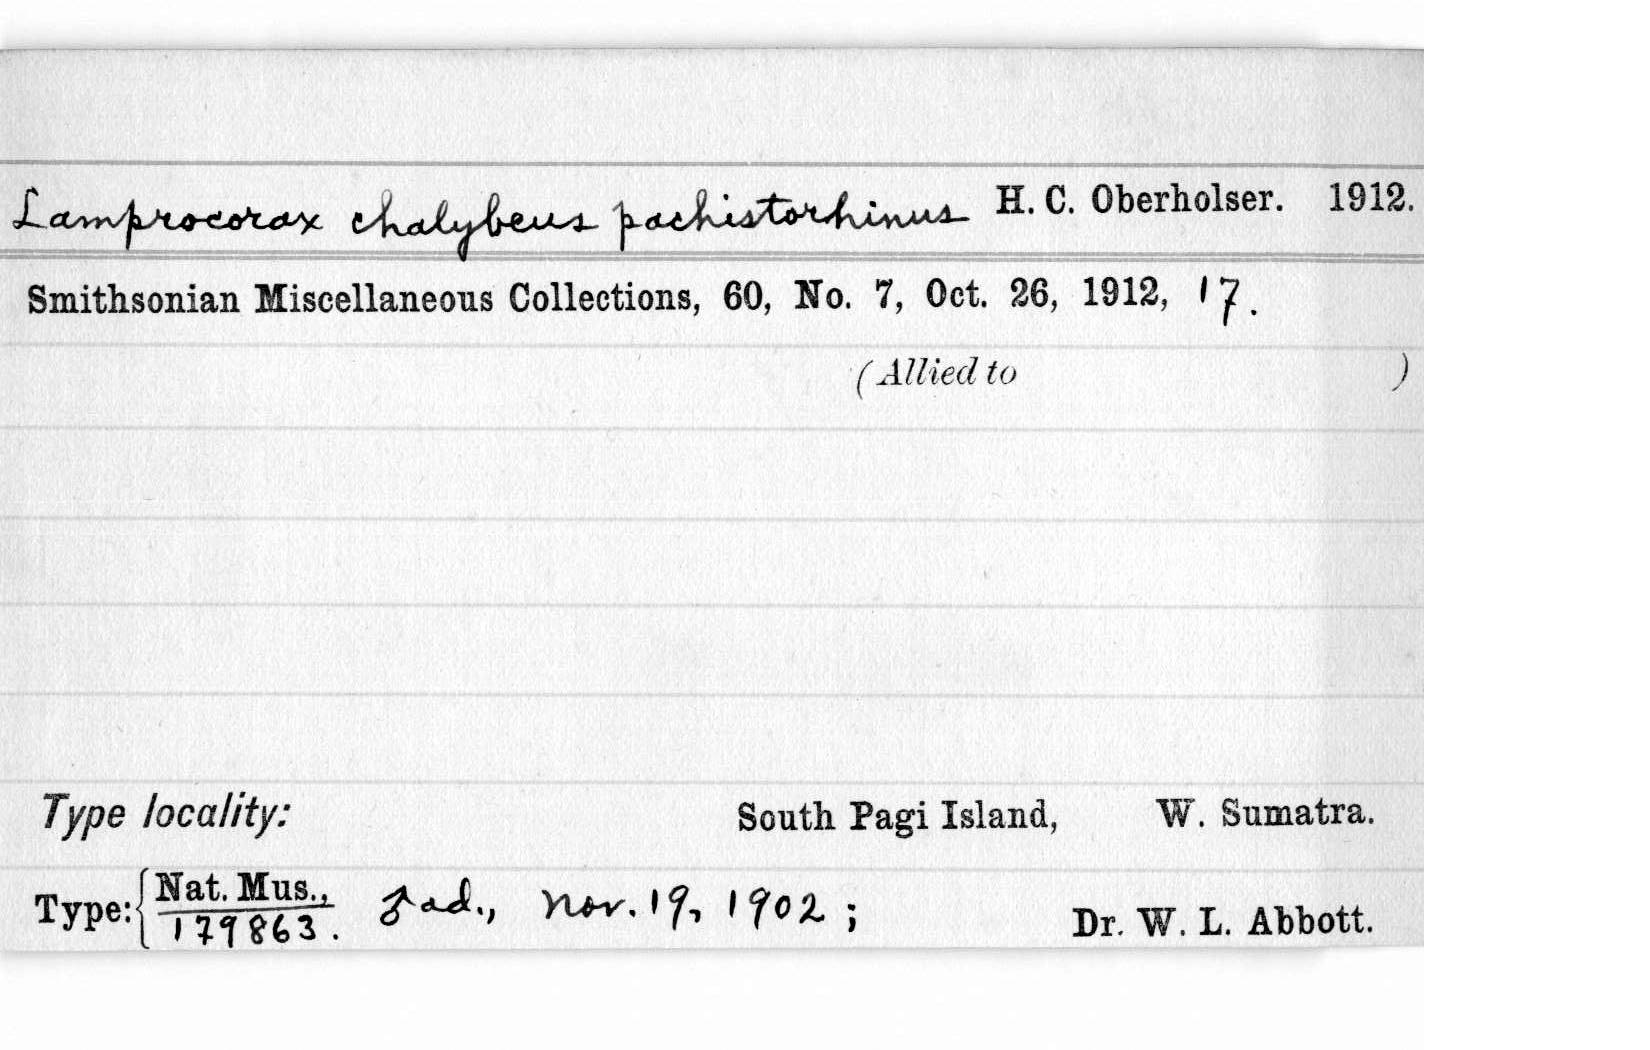 Lamprocorax chalybeus pachistorhinus H. C. Oberholser. 1912.
Smithsonian Miscellaneous Collections, 60, No. 7, Oct. 26, 1912, 17.
(Allied to )
Type locality: South Pagi Island, W. Sumatra.
Type: { Nat. Mus., ♂ ad., Nov. 19, 1902; Dr. W. L. Abbott.
179863.